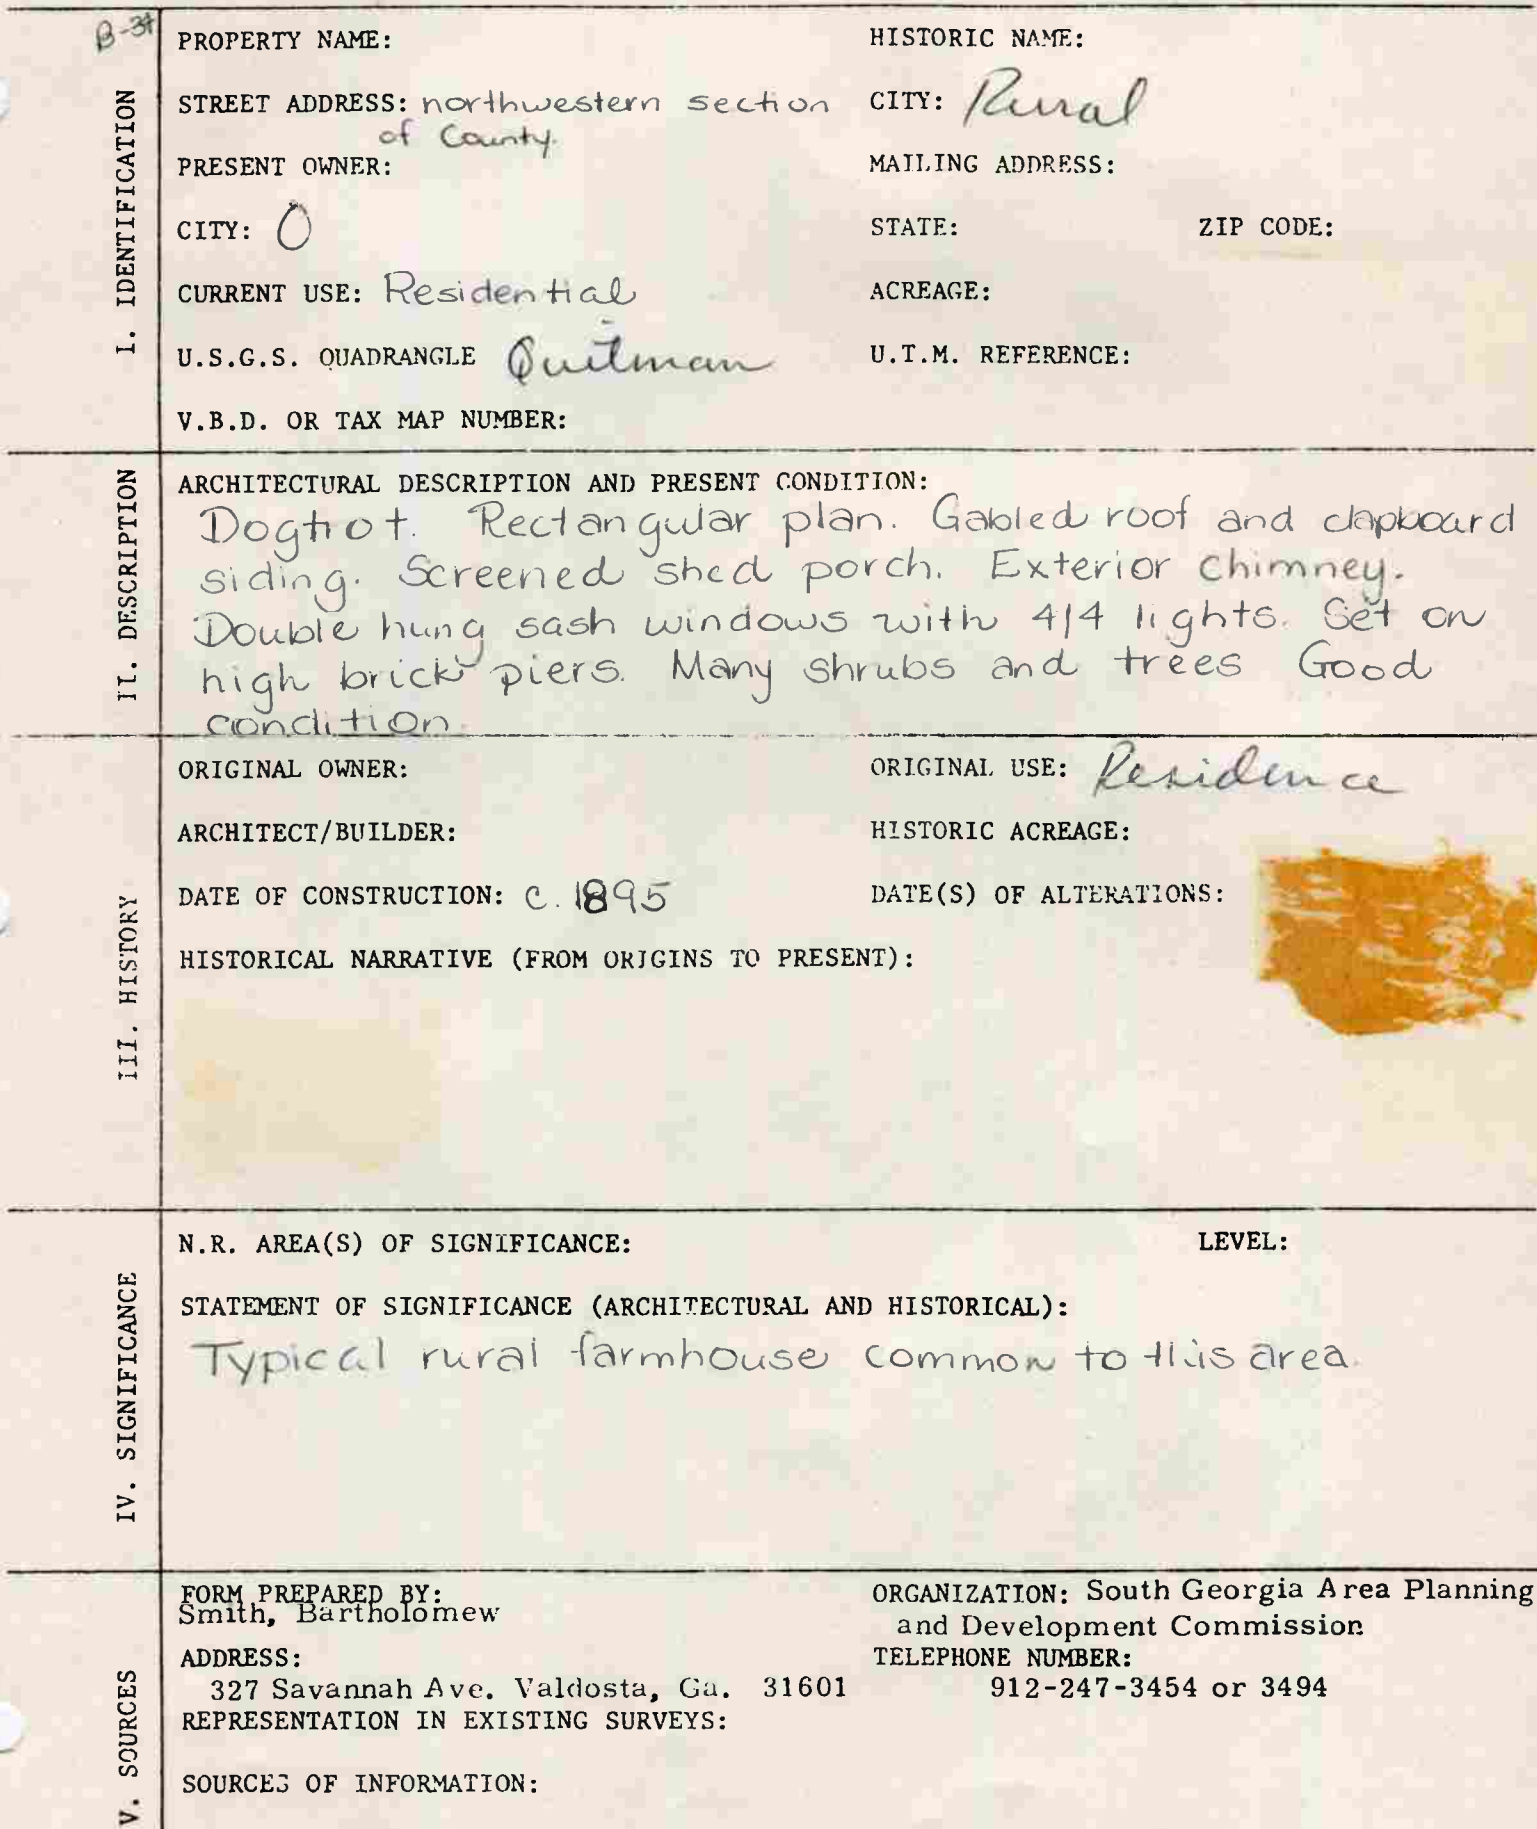 B-34
PROPERTY NAME: HISTORIC NAME:
STREET ADDRESS: northwestern section CITY: Rural
of County.
PRESENT OWNER: MAILING ADDRESS:
CITY: O STATE: ZIP CODE:
CURRENT USE: Residential ACREAGE:
U.S.G.S. QUADRANGLE Quitman U.T.M. REFERENCE:
V.B.D. OR TAX MAP NUMBER:
I. IDENTIFICATION
ARCHITECTURAL DESCRIPTION AND PRESENT CONDITION:
Dogtrot. Rectangular plan. Gabled roof and clapboard
siding. Screened shed porch. Exterior chimney.
Double hung sash windows with 4/4 lights. Set on
high brick piers. Many shrubs and trees Good
condition.
II. DESCRIPTION
ORIGINAL OWNER: ORIGINAL USE: Residence
ARCHITECT/BUILDER: HISTORIC ACREAGE:
DATE OF CONSTRUCTION: c. 1895 DATE(S) OF ALTERATIONS:
HISTORICAL NARRATIVE (FROM ORIGINS TO PRESENT):
III. HISTORY
N.R. AREA(S) OF SIGNIFICANCE: LEVEL:
STATEMENT OF SIGNIFICANCE (ARCHITECTURAL AND HISTORICAL):
Typical rural farmhouse common to this area.
IV. SIGNIFICANCE
FORM PREPARED BY: ORGANIZATION: South Georgia Area Planning
Smith, Bartholomew and Development Commission
ADDRESS: TELEPHONE NUMBER:
327 Savannah Ave. Valdosta, Ga. 31601 912-247-3454 or 3494
REPRESENTATION IN EXISTING SURVEYS:
SOURCES OF INFORMATION:
V. SOURCES